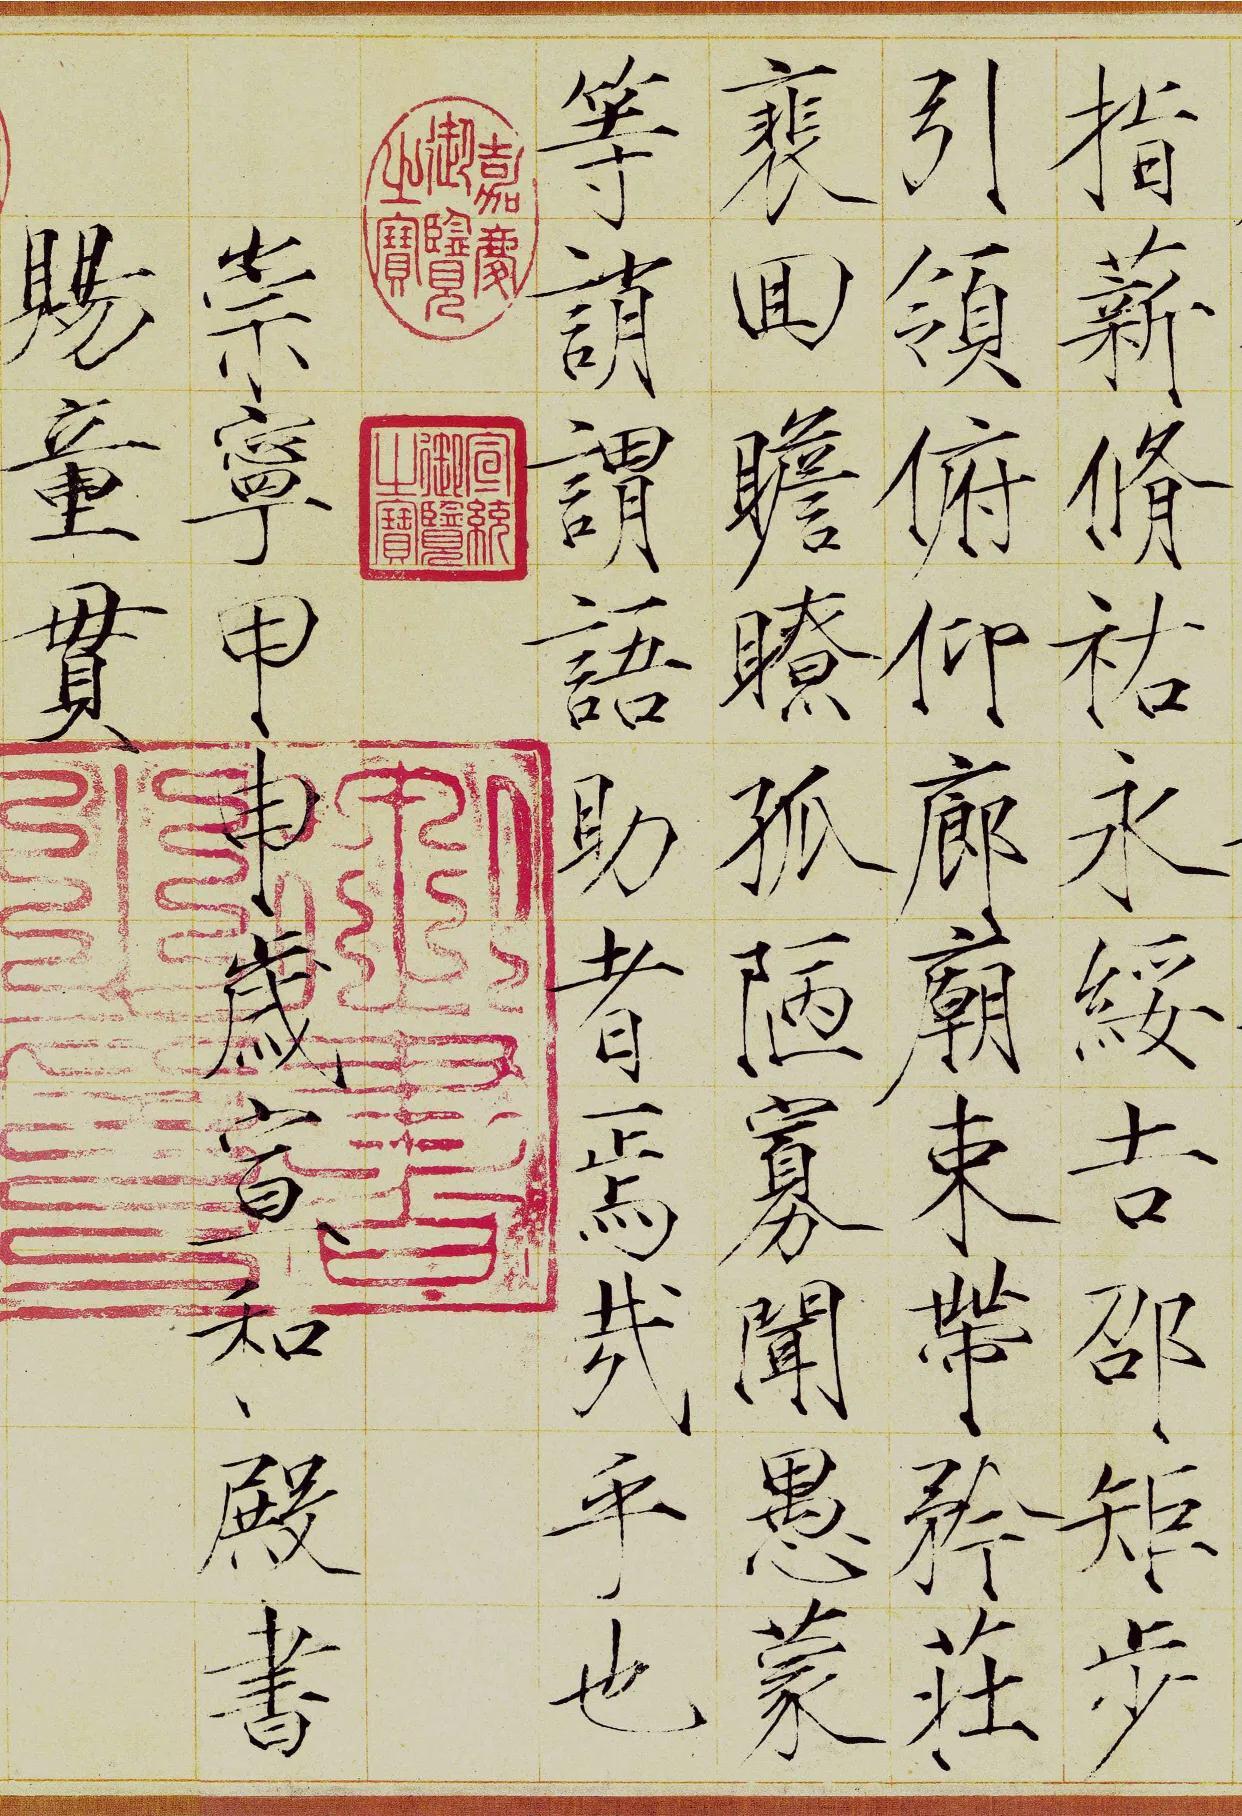 指薪脩祐永綏吉邵矩步
引領俯仰廊廟束帶矜莊
裵回瞻瞭孤陋寡聞愚蒙
等誚謂語助者焉哉乎也
嘉慶御覽之寶
宣統御覽之寶
崇寧甲申歲宣和殿書
賜童貫